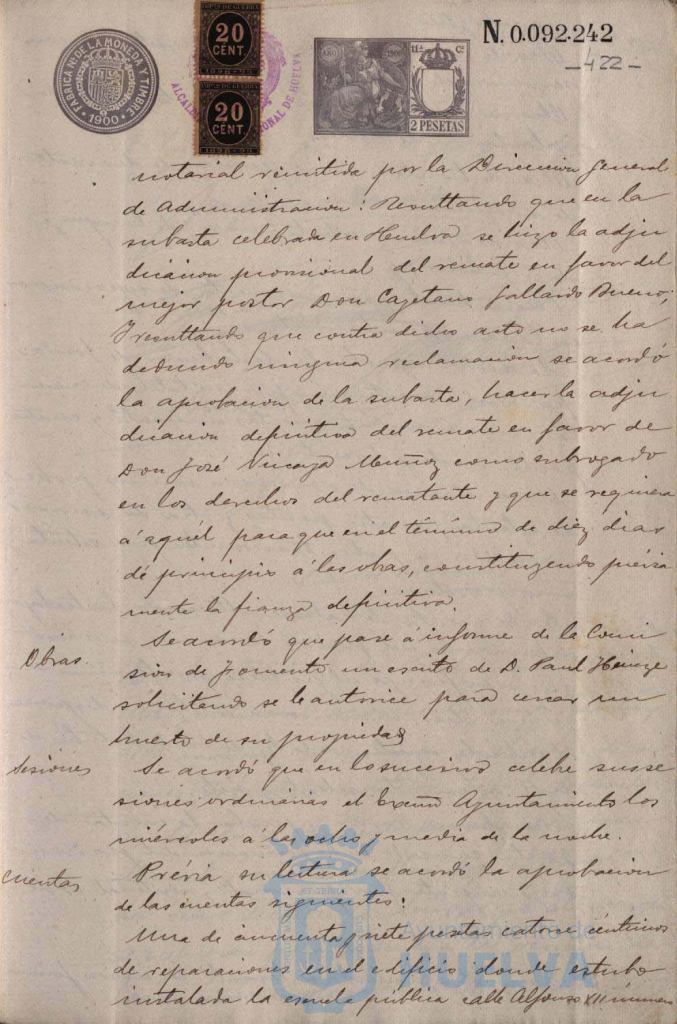 N. 0.092.242
-422-
FABRICA NL. DE LA MONEDA Y TIMBRE
1900
20
CENT.
20
CENT.
ALCAL
ONAL DE HUELVA
11ª Cª
2 PESETAS
notarial remitida por la Direccion General
de Administracion: Resultando que en la
subasta celebrada en Huelva se hizo la adju
dicacion provisional del remate en favor del
mejor postor Don Cayetano Gallardo Bueno;
Y resultando que contra dicho acto no se ha
deducido ninguna reclamacion se acordó
la aprobacion de la subasta, hacer la adju
dicacion definitiva del remate en favor de
Don José Vizcaya Muñoz como subrogado
en los derechos del rematante y que se requiera
á aquél para que en el término de diez dias
dé principio á las obras, constituyendo prévia
mente la fianza definitiva.
Obras.
Se acordó que pase á informe de la Comi
sion de Fomento un escrito de D. Paul
solicitando se le autorice para cercar un
huerto de su propiedad
Sesiones
Se acordó que en lo sucesivo celebre sus se
siones ordinarias el Excmo Ayuntamiento los
miércoles á las ocho y media de la noche.
Cuentas
Prévia su lectura se acordó la aprobacion
de las cuentas siguientes:
Una de cincuenta y siete pesetas catorce céntimos
de reparaciones en el edificio donde estubo
instalada la escuela pública calle Alfonso XII número
HUELVA